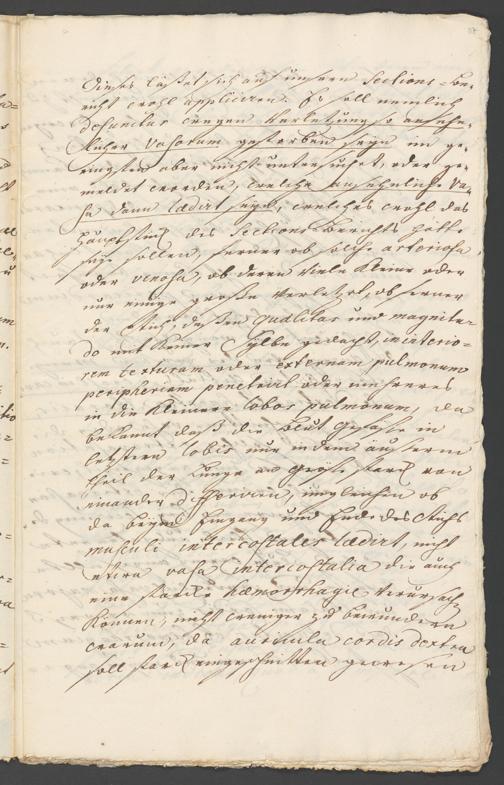 Dieses lässet sich auf unsern Sections-Be-
richt wohl appliciren. Er soll nemlich
defunctus wegen Verletzung so ansehn-
licher Vasorum gestorben seyn, im ge-
ringsten aber nicht untersuchet, oder ge-
meldet worden, welche ansehnliche Va-
sa dann lædirt seyn, welches wohl das
Hauptstück des Sections Berichts hätte
seyn sollen, ferner ob solche arteriosa
oder venosa, ob deren viele kleine oder
nur einige große verletzt, ob ferner
der Stich, dessen qualitas und magnitu-
do mit keiner Sylbe gedacht, in interio-
rem texturam oder externam pulmonum
peripheriam penetrirt oder mehreres
in die kleinere lobos pulmonum, da
bekannt daß die blut Gefäße in
letztern lobis nur in dem äussern
theil der Lunge an Größe starck von
einander differiren, ingleichen ob
da beym Eingang und Ende des Stichs
musculi intercostales lædirt, nicht
etwa vasa intercostalia die auch
eine starcke hæmorrhagie verursach
können, nicht weniger zu bewundern
warum, da auricula cordis dextra
soll starck eingeschnitten gewesen